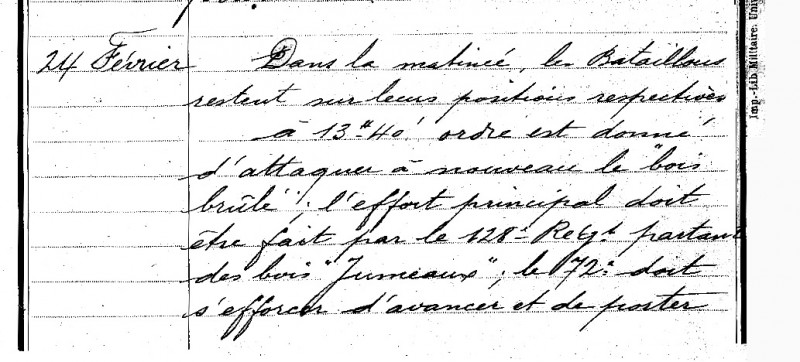 24 Février Dans la matinée, les Bataillons
restent sur leurs positions respectives
à 13ʰ40' ordre est donné
d'attaquer à nouveau le "bois
brûlé"; l'effort principal doit
être fait par le 128ᵉ Régᵗ partant
des bois "Jumeaux"; le 72ᵉ doit
s'efforcer d'avancer et de porter
Imp.-Lib. Militaire. Uni